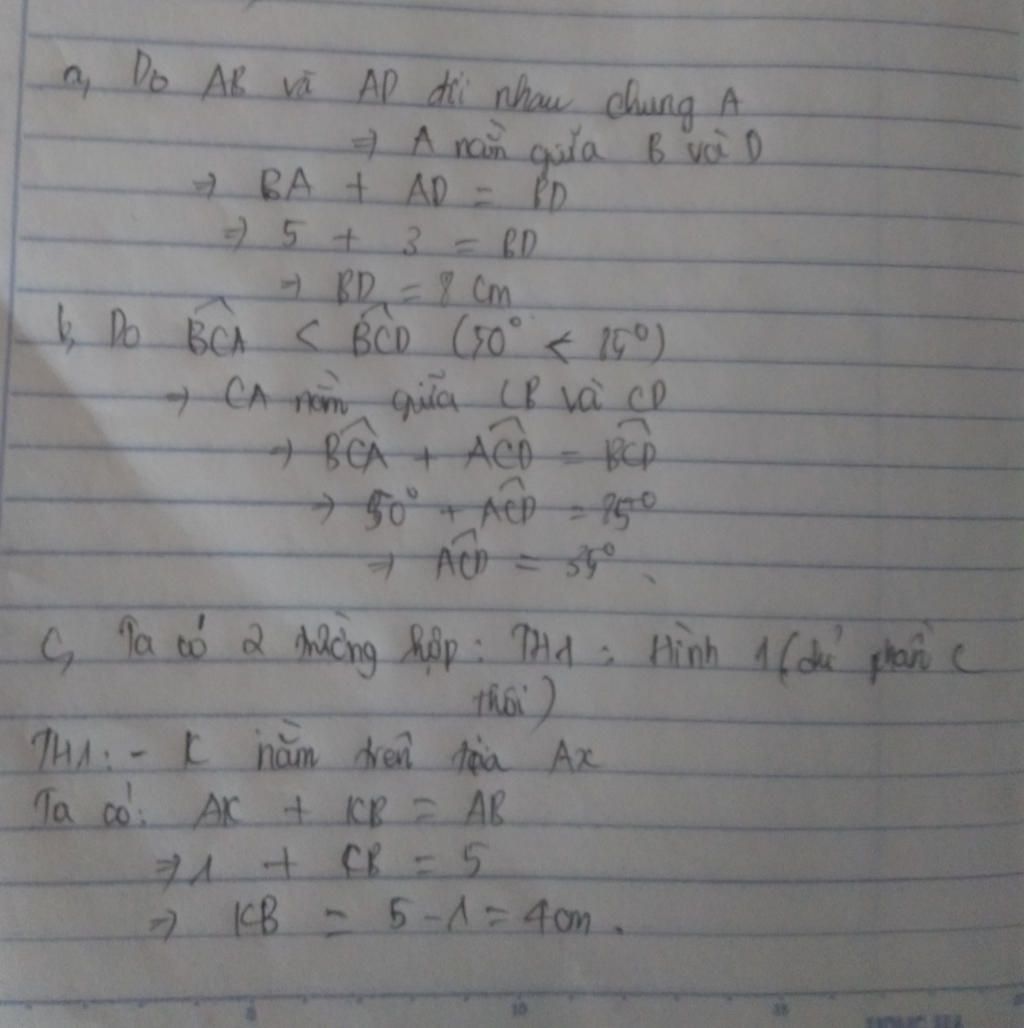 a, Do AB và AD đối nhau chung A
⇒ A nằm giữa B và D
⇒ BA + AD = BD
⇒ 5 + 3 = BD
⇒ BD = 8 cm
b, Do BĈA < BĈD (50° < 85°)
⇒ CA nằm giữa CB và CD
⇒ BĈA + AĈD = BĈD
⇒ 50° + AĈD = 85°
⇒ AĈD = 35°
C, Ta có 2 trường hợp: TH1: Hình 1 (dư phần C
thôi)
TH1: - K nằm trên tia Ax
Ta có: AK + KB = AB
⇒ 1 + KB = 5
⇒ KB = 5 - 1 = 4cm.
5
10